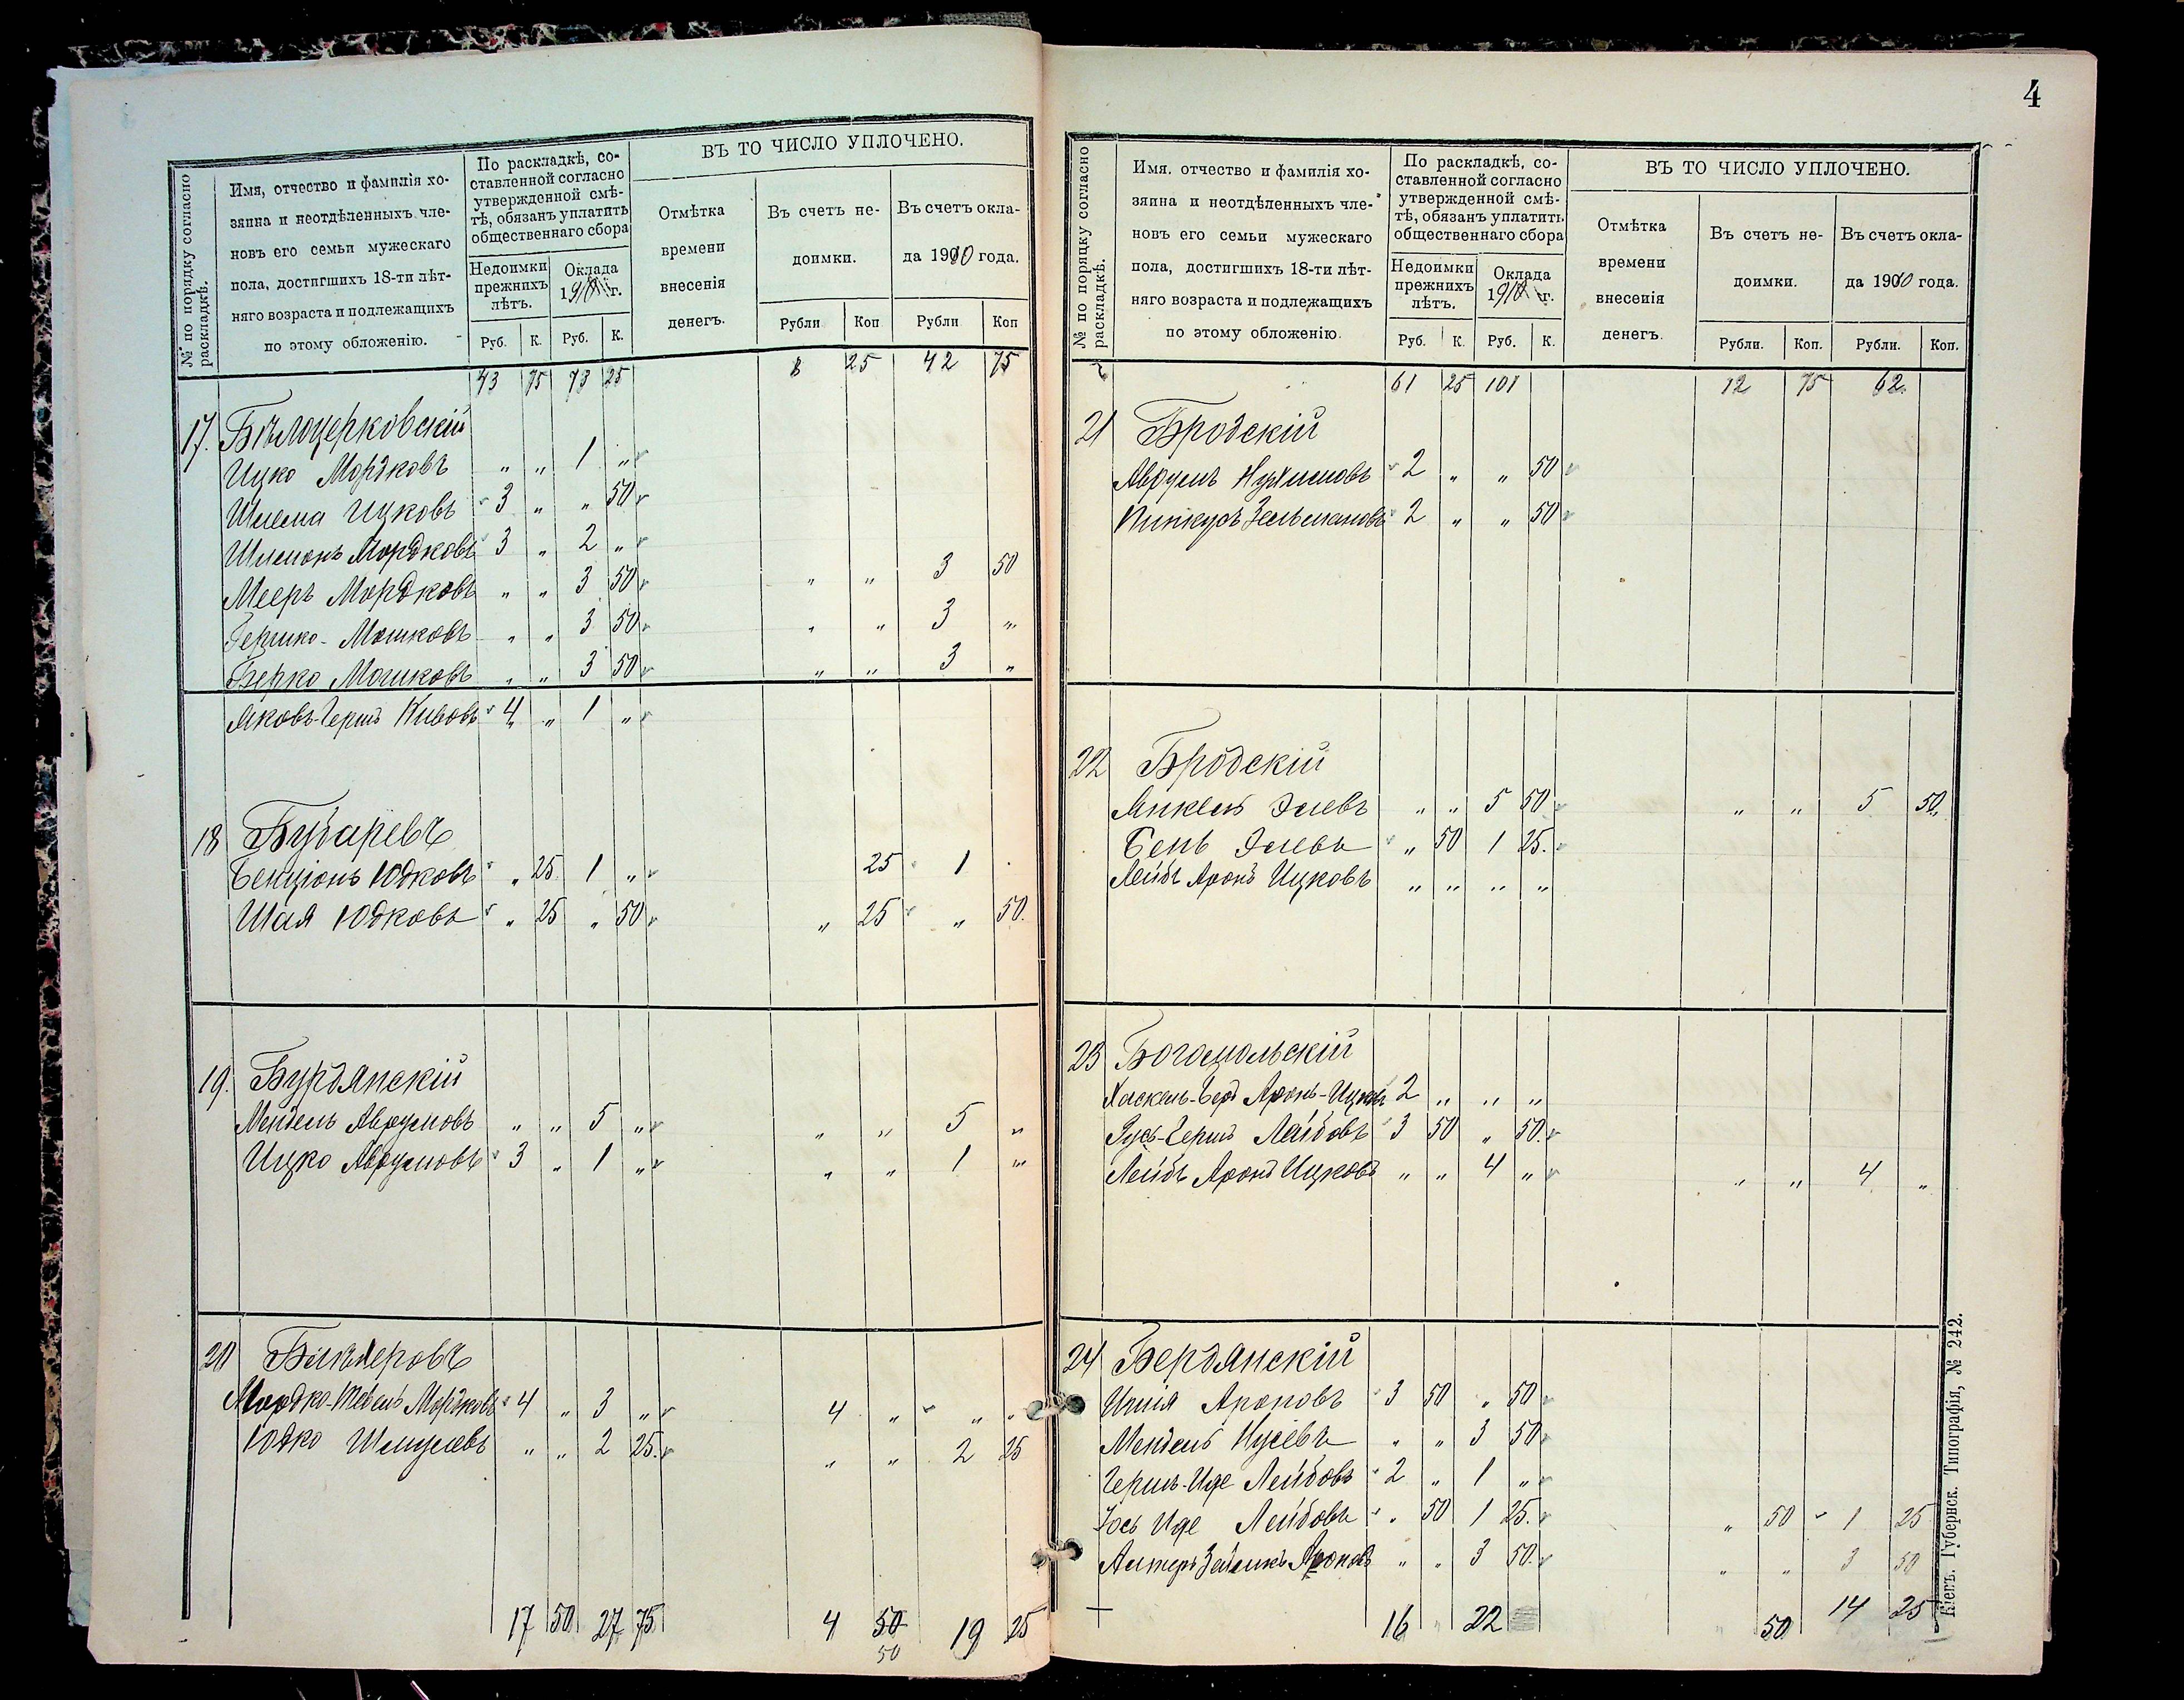 № по порядку согласно раскладкѣ.
Имя, отчество и фамилія хо-
зяина и неотдѣленныхъ чле-
новъ его семьи мужескаго
пола, достигшихъ 18-ти лѣт-
няго возраста и подлежащихъ
по этому обложенію.
По раскладкѣ, со-
ставленной согласно
утвержденной смѣ-
тѣ, обязанъ уплатить
общественнаго сбора
Недоимки
прежнихъ
лѣтъ.
Оклада
1910 г.
Руб. К. Руб. К.
ВЪ ТО ЧИСЛО УПЛОЧЕНО.
Отмѣтка
времени
внесенія
денегъ.
Въ счетъ не-
доимки.
Въ счетъ окла-
да 1910 года.
Рубли Коп Рубли Коп
43 75 73 25 8 25 42 75
17. Бѣлоцерковскій
Ицко Мордковъ " " 1 "
Шлема Ицковъ 3 " " 50
Шлемонъ Мордковъ 3 " 2 "
Мееръ Мордковъ " " 3 50 " " 3 50
Гершко-Мошковъ " " 3 50 " " 3 "
Берко Мошковъ " " 3 50 " " 3 "
Яковъ-Гершъ Кивовъ 4 " 1 "
18 Бударевъ
Бенціонъ Юдковъ " 25 1 " 25 1
Шая Юдковъ " 25 " 50 " 25 " 50.
19. Бурдянскій
Мендель Аврумовъ " " 5 " " " 5 "
Ицко Аврумовъ 3 " 1 " " " 1 "
20
Мордко-Тевель Мордковъ 4 " 3 " 4 " " "
Юдко Шмулевъ " " 2 25. " " 2 25
17 50 27 75 4 50 19 25
50
4
№ по порядку согласно раскладкѣ.
Имя. отчество и фамилія хо-
зяина и неотдѣленныхъ чле-
новъ его семьи мужескаго
пола, достигшихъ 18-ти лѣт-
няго возраста и подлежащихъ
по этому обложенію.
По раскладкѣ, со-
ставленной согласно
утвержденной смѣ-
тѣ, обязанъ уплатить
общественнаго сбора
Недоимки
прежнихъ
лѣтъ.
Оклада
1910 г.
Руб. К. Руб. К.
ВЪ ТО ЧИСЛО УПЛОЧЕНО.
Отмѣтка
времени
внесенія
денегъ.
Въ счетъ не-
доимки.
Въ счетъ окла-
да 1910 года.
Рубли. Коп. Рубли. Коп.
61 25 101 12 75 62.
21 Бродскій
Аврумъ Нухимовъ 2 " " 50
Пинкусъ Зельмановъ 2 " " 50
22 Бродскій
Янкель Элевъ " " 5 50 " " 5 50.
Бень Элевъ " 50 1 25.
Лейбъ Аронъ Ицковъ " " " "
23 Богомольскій
Хаскель-Беръ Аронъ-Ицковъ 2 " " "
Гершъ Лейбовъ 3 50 " 50.
Лейбъ Аронъ Ицковъ " " 4 " " " 4 "
24 Бердянскій
Ароновъ 3 50 " 50
Мендель Нусевъ " " 3 50
Гершъ-Иде Лейбовъ 2 " 1 "
Іось Иде Лейбовъ " 50 1 25. " 50 1 25
Алтеръ Ароновъ " " 3 50. " " 3 50
16 " 22 50 14 25
Кіевъ. Губернск. Типографія, № 242.